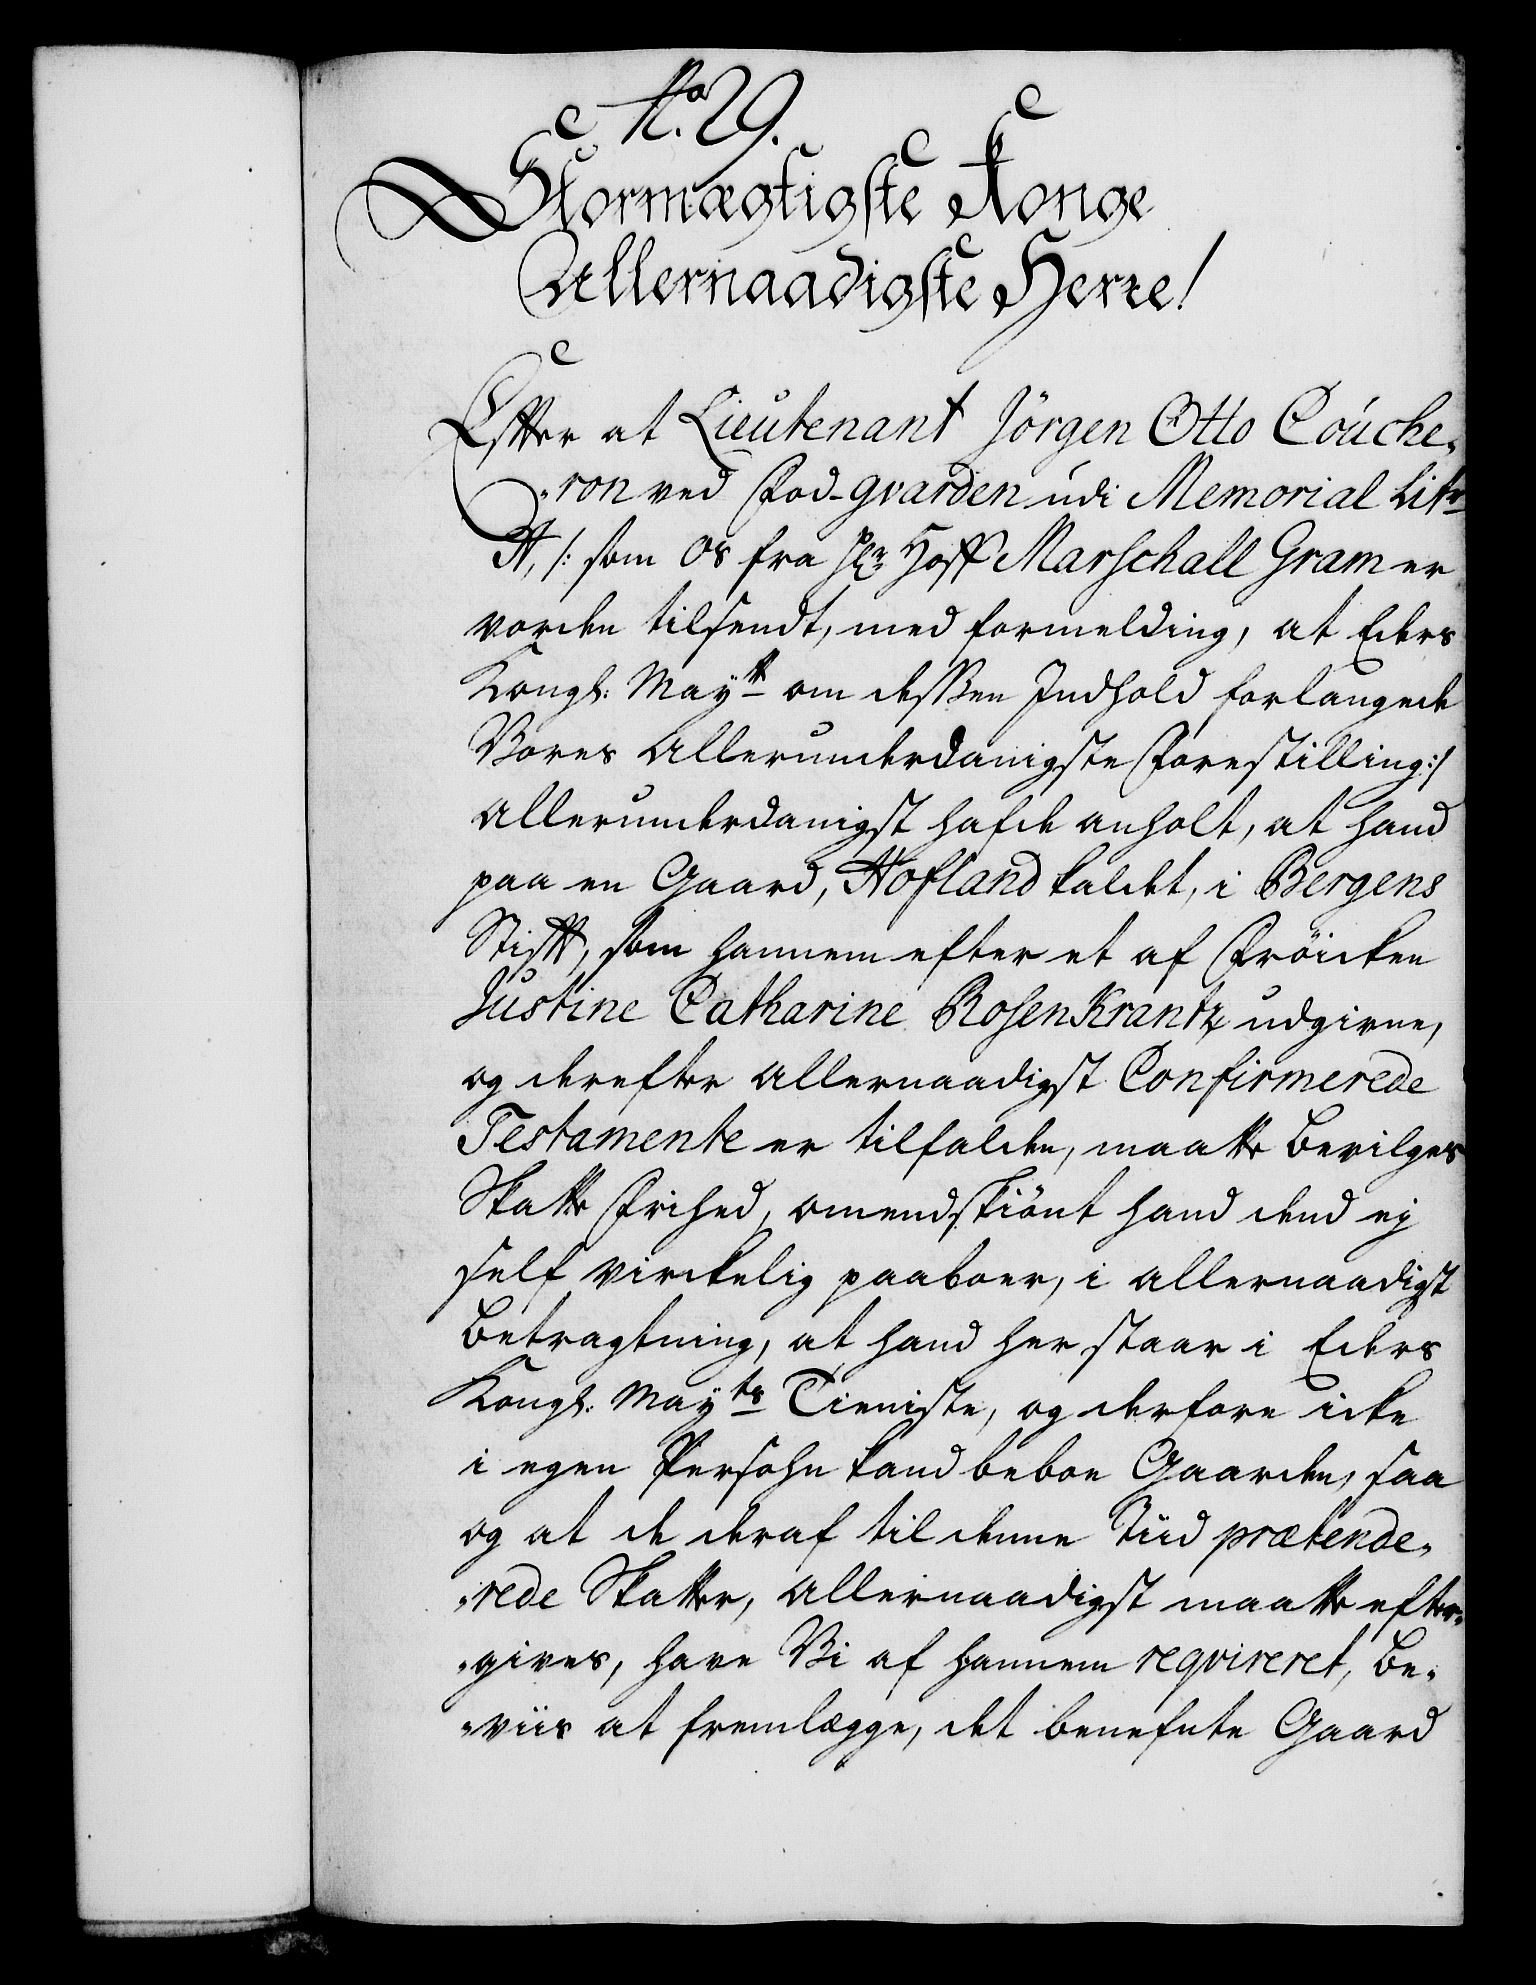 No. 29.
Stormægtigste Konge
Allernaadigste Herre!
Efter at Lieutenant Jörgen Otto Couche„
„ron ved Fod-gvarden udi Memorial Litr
A, /: som os fra Hr Hoff Marschall Gram er
vorden tilsendt, med formelding, at Eders
Kongl: Maytt om desssen Indhold forlangede
Vores allerunderdanigste Forestilling :/
allerunderdanigst hafde anholt, at hand
paa en Gaard, Hofland kaldet, i Bergens
Stift, som hannem efter et af Fröicken
Justine Catharine RosenKrantz udgivne,
og derefter allernaadigst Confirmerede
Testamente er tilfalden, maatte bevilges
Skatte Frihed, omendskiönt hand dend ej
self virckelig paaboer, i allernaadigst
betragtning, at hand her staar i Eders
Kongl: Mayts Tieniste, og derfore icke
i egen Persohn kand beboe Gaarden, saa
og at de deraf til denne Tiid prætende„
„rede Skatter, allernaadigst maatte efter„
„gives, have Vi af hannem reqvireret, be„
„viis at fremlægge, det benefnte Gaard